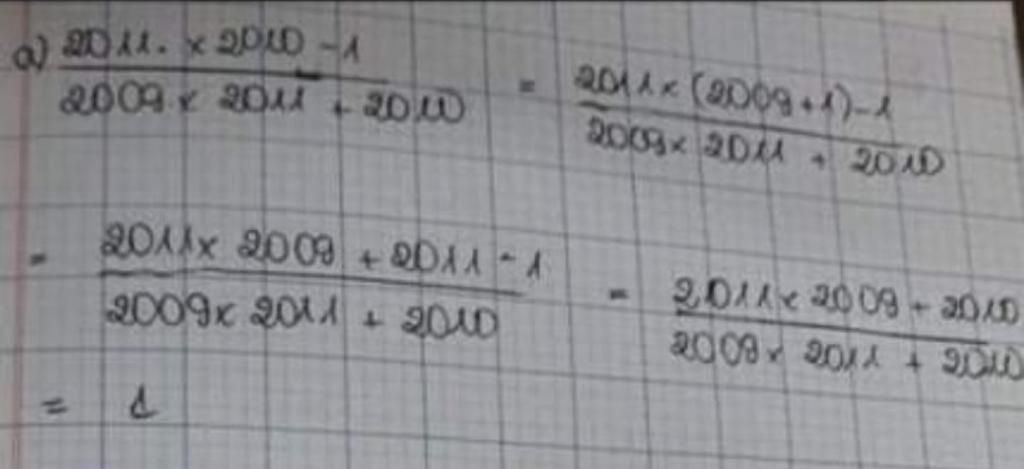 a) 2011. × 2010 - 1 / 2009 × 2011 + 2010 = 2011 × (2009 + 1) - 1 / 2009 × 2011 + 2010
= 2011 × 2009 + 2011 - 1 / 2009 × 2011 + 2010 = 2011 × 2009 + 2010 / 2009 × 2011 + 2010
= 1